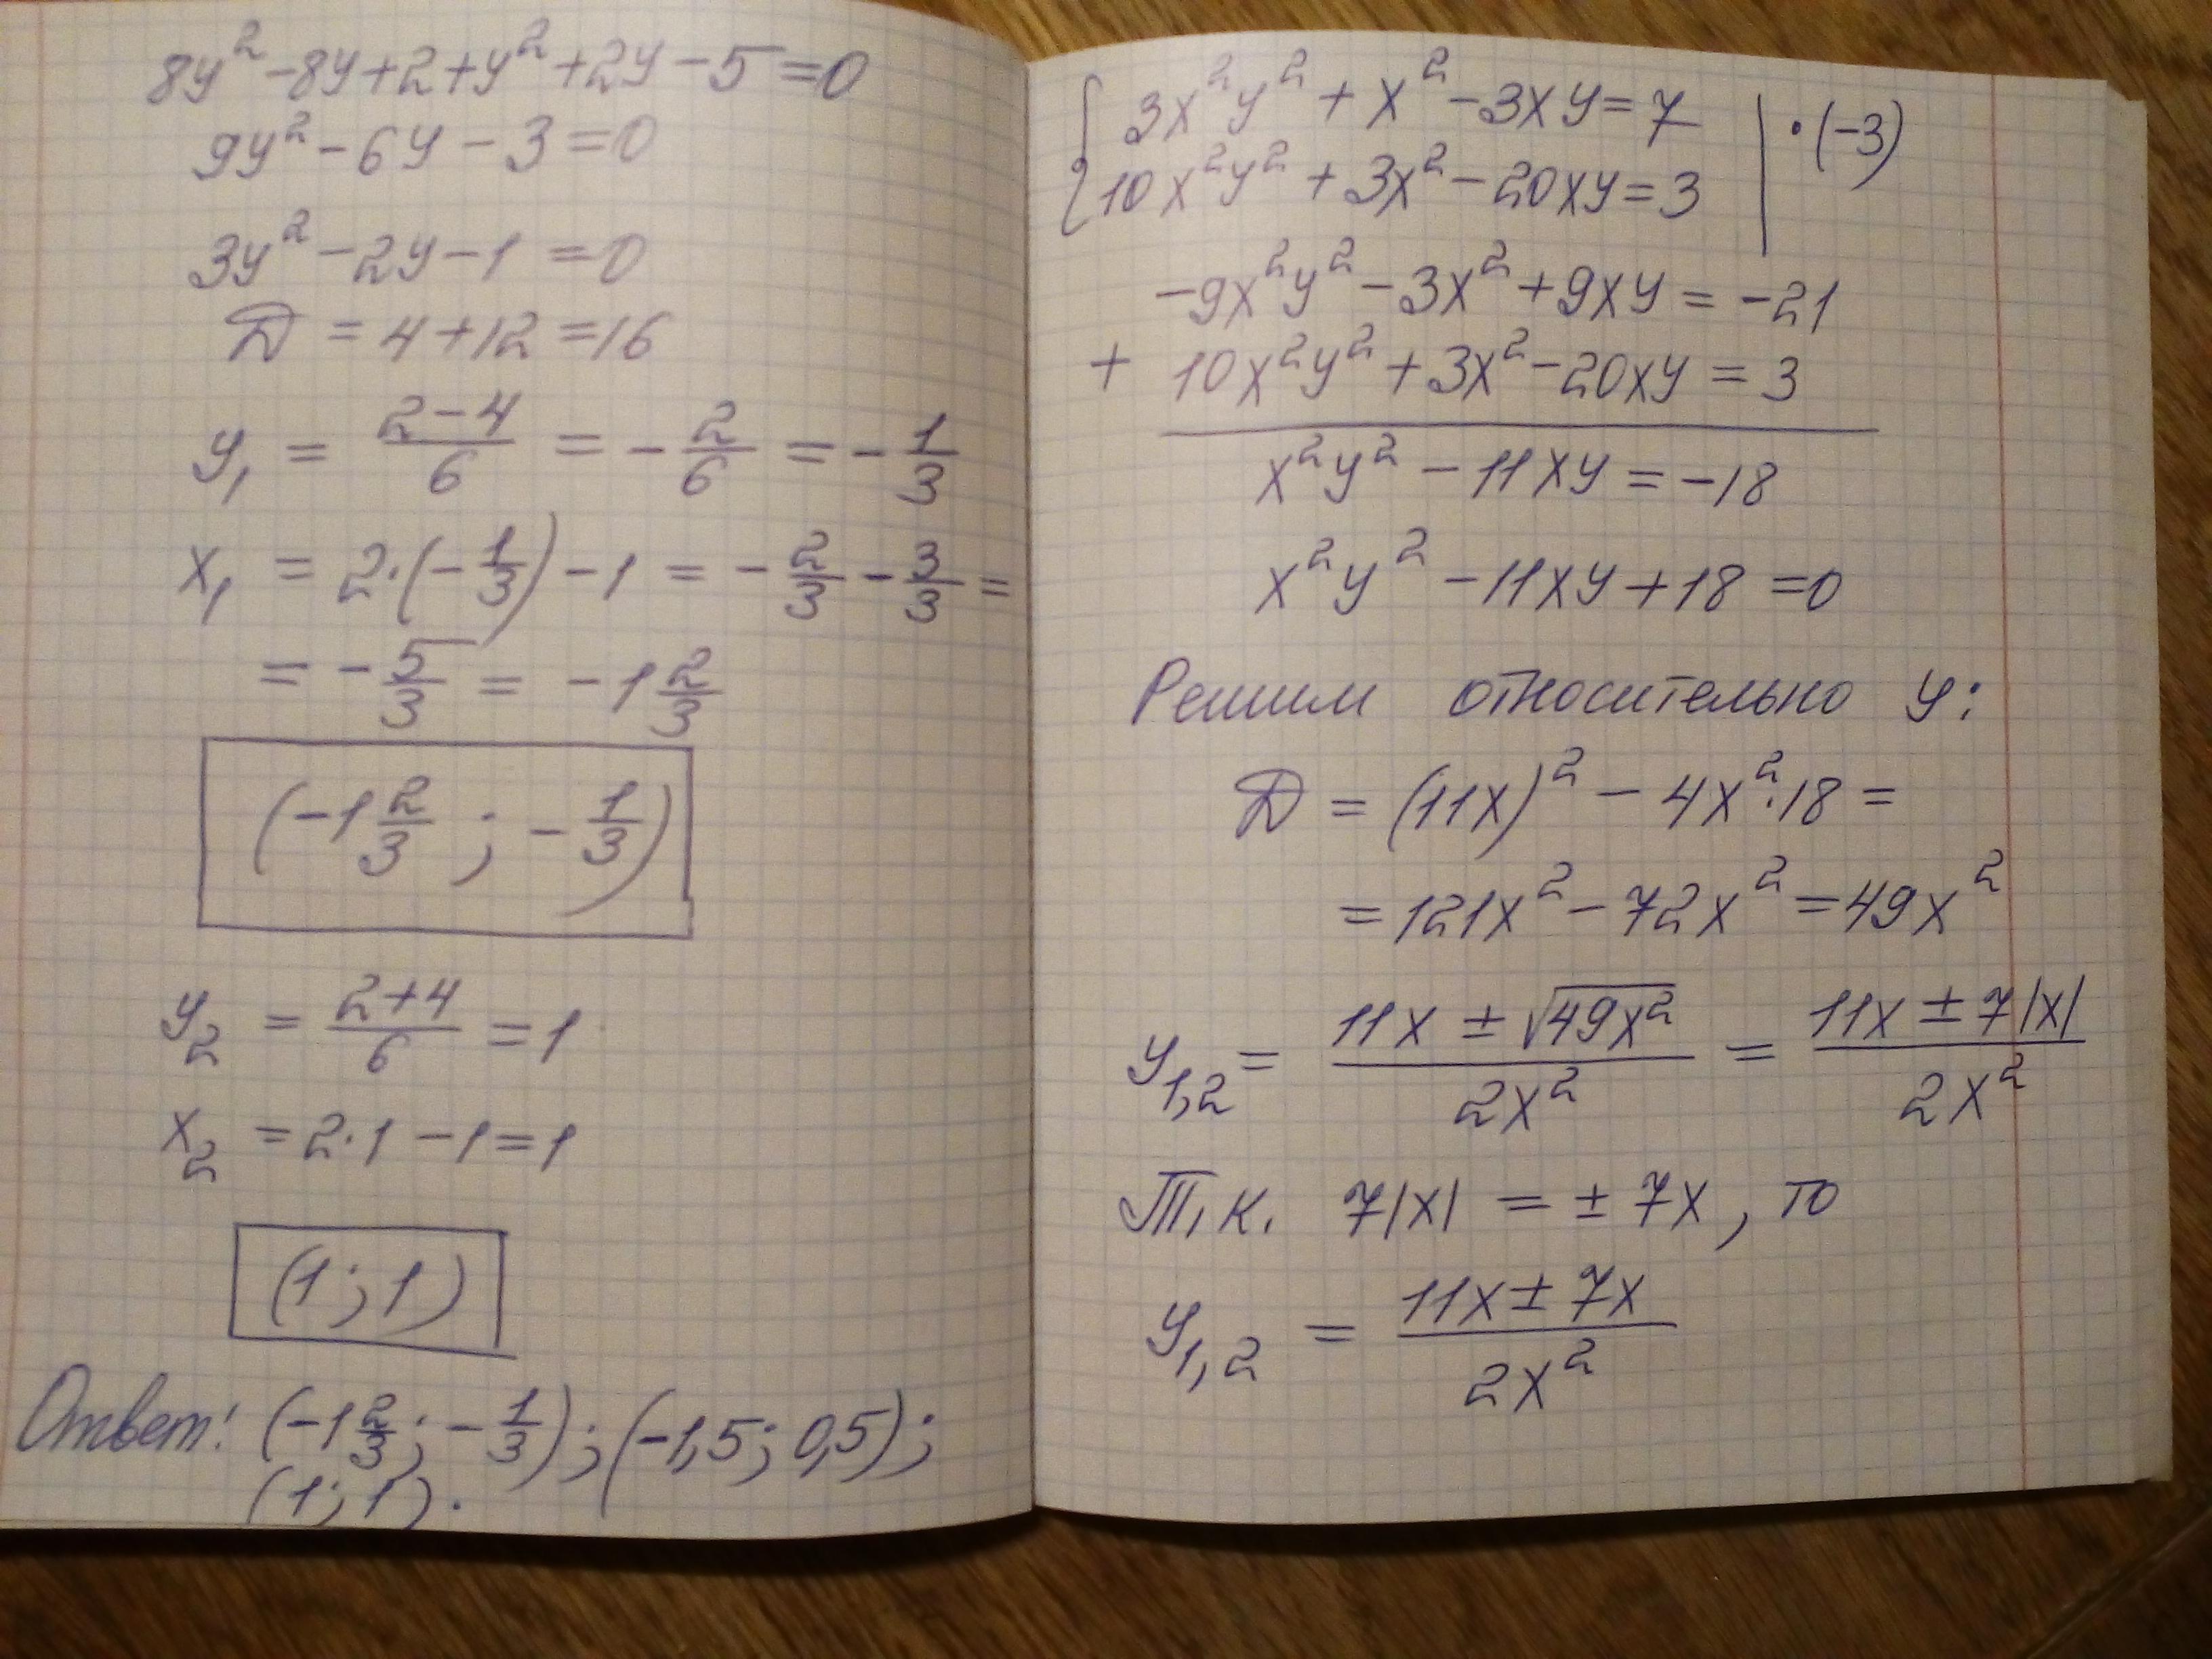 8y² - 8y + 2 + y² + 2y - 5 = 0
9y² - 6y - 3 = 0
3y² - 2y - 1 = 0
D = 4 + 12 = 16
y₁ = (2-4)/6 = -2/6 = -1/3
x₁ = 2·(-1/3) - 1 = -2/3 - 3/3 =
= -5/3 = -1 2/3
(-1 2/3 ; -1/3)
y₂ = (2+4)/6 = 1
x₂ = 2·1 - 1 = 1
(1; 1)
Ответ: (-1 2/3; -1/3); (-1,5; 0,5);
(1; 1).
{ 3x²y² + x² - 3xy = 7 | ·(-3)
10x²y² + 3x² - 20xy = 3
-9x²y² - 3x² + 9xy = -21
+ 10x²y² + 3x² - 20xy = 3
x²y² - 11xy = -18
x²y² - 11xy + 18 = 0
Решим относительно y:
D = (11x)² - 4x²·18 =
= 121x² - 72x² = 49x²
y₁,₂ = (11x ± √49x²)/2x² = (11x ± 7|x|)/2x²
Т.к. 7|x| = ± 7x, то
y₁,₂ = (11x ± 7x)/2x²